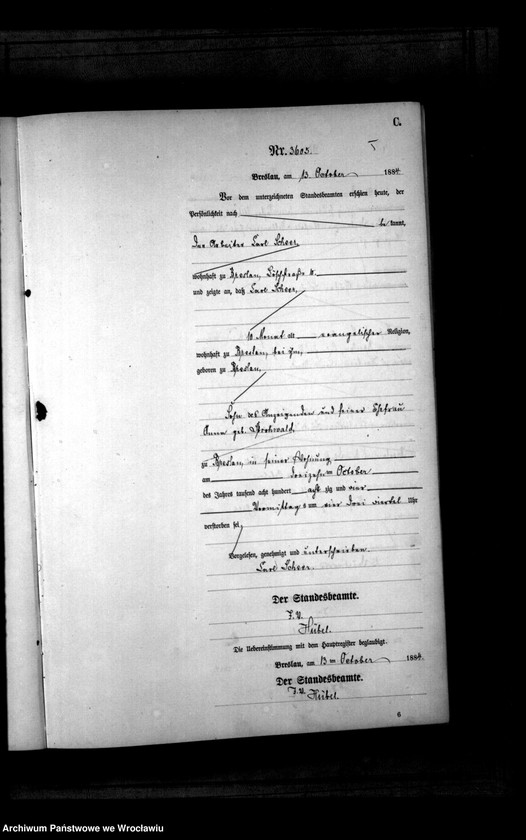 C.
Nr. 3605.
Breslau, am 13. October 1884
Vor dem unterzeichneten Standesbeamten erschien heute, der
Persönlichkeit nach
be kannt,
der Arbeiter Carl Scheer,
wohnhaft zu Breslau,
und zeigte an, daß Carl Scheer,
10 Monat alt evangelischer Religion,
wohnhaft zu Breslau, bei ihm,
geboren zu Breslau,
Sohn des Anzeigenden und seiner Ehefrau
Anna geb.
zu Breslau, in seiner Wohnung
am dreizehnten October
des Jahres tausend acht hundert acht zig und vier
Vormittags um vier drei viertel Uhr
verstorben sei.
Vorgelesen, genehmigt und unterschrieben.
Carl Scheer.
Der Standesbeamte.
I. V.
Hübel.
Die Uebereinstimmung mit dem Hauptregister beglaubigt.
Breslau, am 13ten October 1884.
Der Standesbeamte.
I. V.
Hübel.
6
Archiwum Państwowe we Wrocławiu